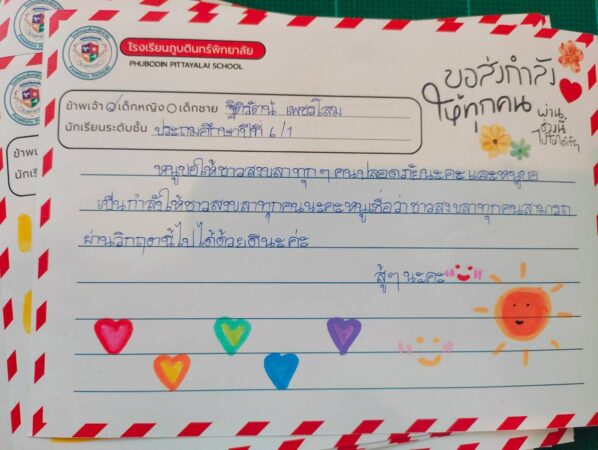 โรงเรียนภูบดินทร์พิทยาลัย
PHUBODIN PITTAYALAI SCHOOL
ขอส่งกำลัง
ให้ทุกคน
ผ่าน
ช่วงนี้
ไปให้ได้
ข้าพเจ้า เด็กหญิง เด็กชาย ฐิติวัตน์ เพชรโสม
นักเรียนระดับชั้น ประถมศึกษาปีที่ 6/1
หนูขอให้ชาวสงขลาทุกๆคนปลอดภัยนะคะ และหนูขอ
เป็นกำลังให้ชาวสงขลาทุกคนนะคะหนูเชื่อว่าชาวสงขลาทุกคนสามารถ
ผ่านวิกฤตนี้ไปได้ด้วยดีนะค่ะ
สู้ๆนะคะ